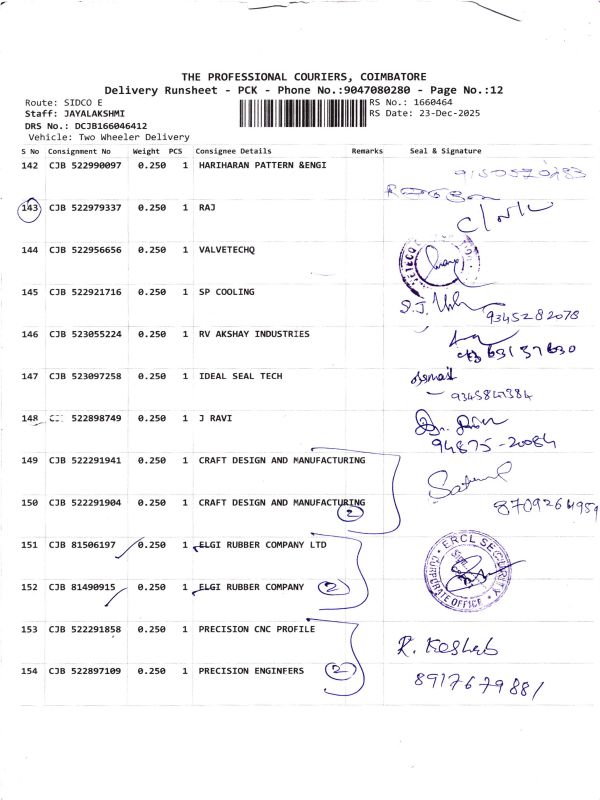 THE PROFESSIONAL COURIERS, COIMBATORE
Delivery Runsheet - PCK - Phone No.:9047080280 - Page No.:12
Route: SIDCO E
RS No.: 1660464
Staff: JAYALAKSHMI
RS Date: 23-Dec-2025
DRS No.: DCJB166046412
Vehicle: Two Wheeler Delivery
S No Consignment No Weight PCS Consignee Details Remarks Seal & Signature
142 CJB 522990097 0.250 1 HARIHARAN PATTERN &ENGI
143 CJB 522979337 0.250 1 RAJ
144 CJB 522956656 0.250 1 VALVETECHQ
145 CJB 522921716 0.250 1 SP COOLING
9345282078
146 CJB 523055224 0.250 1 RV AKSHAY INDUSTRIES
147 CJB 523097258 0.250 1 IDEAL SEAL TECH
148 522898749 0.250 1 J RAVI
94875-20084
149 CJB 522291941 0.250 1 CRAFT DESIGN AND MANUFACTURING
150 CJB 522291904 0.250 1 CRAFT DESIGN AND MANUFACTURING
2
151 CJB 81506197 0.250 1 ELGI RUBBER COMPANY LTD
ERCL SECURITY
CORPORATE OFFICE
152 CJB 81490915 0.250 1 ELGI RUBBER COMPANY 2
153 CJB 522291858 0.250 1 PRECISION CNC PROFILE
R. Keshab
154 CJB 522897109 0.250 1 PRECISION ENGINFERS 2